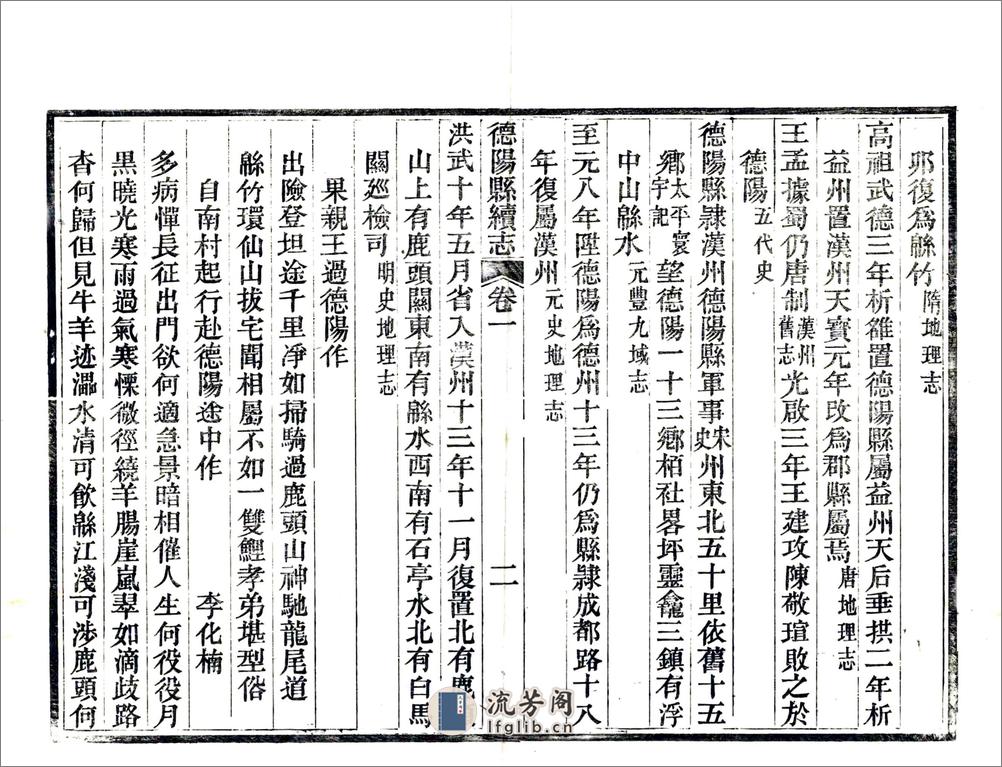 郡復爲緜竹隋地理志
高祖武德三年析雒置德陽縣屬益州天后垂拱二年析
益州置漢州天寶元年改爲郡縣屬焉唐地理志
王孟據蜀仍唐制漢州舊志光啟三年王建攻陳敬瑄敗之於
德陽五代史
德陽縣隸漢州德陽縣軍事宋史州東北五十里依舊十五
鄉太平寰宇記望德陽一十三鄉栢社畧坪靈龕三鎮有浮
中山緜水元豐九域志
至元八年陞德陽爲德州十三年仍爲縣隷成都路十八
年復屬漢州元史地理志
德陽縣續志 卷一 二
洪武十年五月省入漢州十三年十一月復置北有鹿
山上有鹿頭關東南有緜水西南有石亭水北有白馬
關廵檢司明史地理志
果親王過德陽作
出險登坦途千里凈如掃騎過鹿頭山神馳龍尾道
緜竹環仙山拔宅聞相屬不如一雙鯉孝弟堪型俗
自南村起行赴德陽途中作 李化楠
多病憚長征出門欲何適急景暗相催人生何役役月
黑曉光寒雨過氣寒慄微徑繞羊腸崖嵐翠如滴歧路
杳何歸但見牛羊迹溫水清可飲緜江淺可涉鹿頭何
流芳阁
lfglib.cn